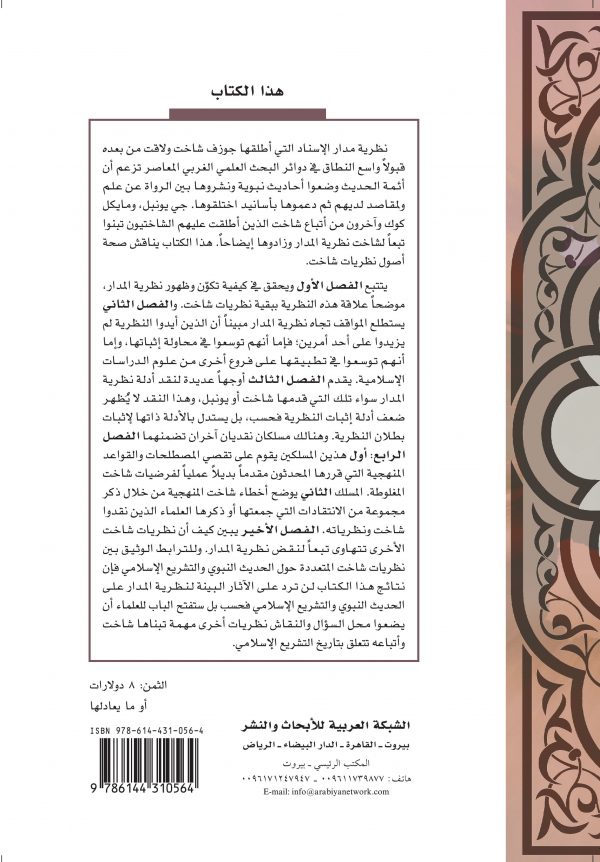 هذا الكتاب
نظرية مدار الإسناد التي أطلقها جوزف شاخت ولاقت من بعده
قبولاً واسع النطاق في دوائر البحث العلمي الغربي المعاصر تزعم أن
أئمة الحديث وضعوا أحاديث نبوية ونشروها بين الرواة عن علم
ولمقاصد لديهم ثم دعموها بأسانيد اختلقوها. جي يونبل، ومايكل
كوك وآخرون من أتباع شاخت الذين أطلقت عليهم الشاختيون تبنوا
تبعاً لشاخت نظرية المدار وزادوها إيضاحاً. هذا الكتاب يناقش صحة
أصول نظريات شاخت.
يتتبع الفصل الأول ويحقق في كيفية تكوّن وظهور نظرية المدار،
موضحاً علاقة هذه النظرية ببقية نظريات شاخت. والفصل الثاني
يستطلع المواقف تجاه نظرية المدار مبيناً أن الذين أيدوا النظرية لم
يزيدوا على أحد أمرين؛ فإما أنهم توسعوا في محاولة إثباتها، وإما
أنهم توسعوا في تطبيقها على فروع أخرى من علوم الدراسات
الإسلامية. يقدم الفصل الثالث أوجهاً عديدة لنقد أدلة نظرية
المدار سواء تلك التي قدمها شاخت أو يونبل، وهذا النقد لا يُظهر
ضعف أدلة إثبات النظرية فحسب، بل يستدل بالأدلة ذاتها لإثبات
بطلان النظرية. وهنالك مسلكان نقديان آخران تضمنهما الفصل
الرابع: أول هذين المسلكين يقوم على تقصي المصطلحات والقواعد
المنهجية التي قررها المحدثون مقدماً بديلاً عملياً لفرضيات شاخت
المغلوطة. المسلك الثاني يوضح أخطاء شاخت المنهجية من خلال ذكر
مجموعة من الانتقادات التي جمعتها أو ذكرها العلماء الذين نقدوا
شاخت ونظرياته. الفصل الأخير يبين كيف أن نظريات شاخت
الأخرى تتهاوى تبعاً لنقض نظرية المدار. وللترابط الوثيق بين
نظريات شاخت المتعددة حول الحديث النبوي والتشريع الإسلامي فإن
نتائج هذا الكتاب لن ترد على الآثار البينة لنظرية المدار على
الحديث النبوي والتشريع الإسلامي فحسب بل ستفتح الباب للعلماء أن
يضعوا محل السؤال والنقاش نظريات أخرى مهمة تبناها شاخت
وأتباعه تتعلق بتاريخ التشريع الإسلامي.
الثمن: ٨ دولارات
أو ما يعادلها
ISBN 978-614-431-056-4
9 786144 310564
الشبكة العربية للأبحاث والنشر
بيروت ـ القاهرة ـ الدار البيضاء ـ الرياض
المكتب الرئيسي ـ بيروت
هاتف: ٠٠٩٦١١٧٣٩٨٧٧ ـ ٠٠٩٦١٧١٢٤٧٩٤٧
E-mail: info@arabiyanetwork.com